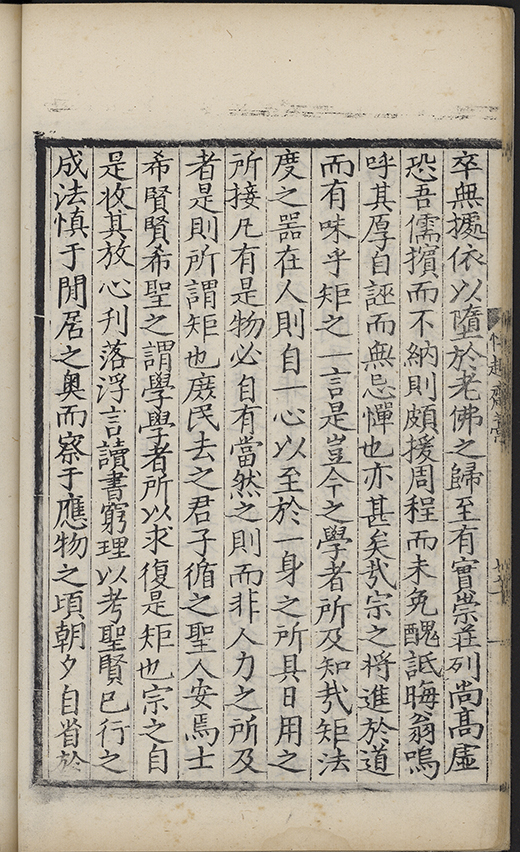 卒無擾依以墮於老佛之歸至有實崇莊列尚髙虛
恐吾儒擯而不納則頗援周程而未免醜詆晦翁嗚
呼其厚自誣而無忌憚也亦甚矣㢤宗之將進於道
而有味乎矩之一言是豈今之學者所及知㢤矩法
度之噐在人則自一心以至於一身之所具日用之
所接凡有是物必自有當然之則而非人力之所及
者是則所謂矩也庶民去之君子循之聖人安焉士
希賢賢希聖之謂學學者所以求復是矩也宗之自
是收其放心刋落浮言讀書窮理以考聖賢已行之
成法慎于閒居之奥而察于應物之頃朝夕自省於